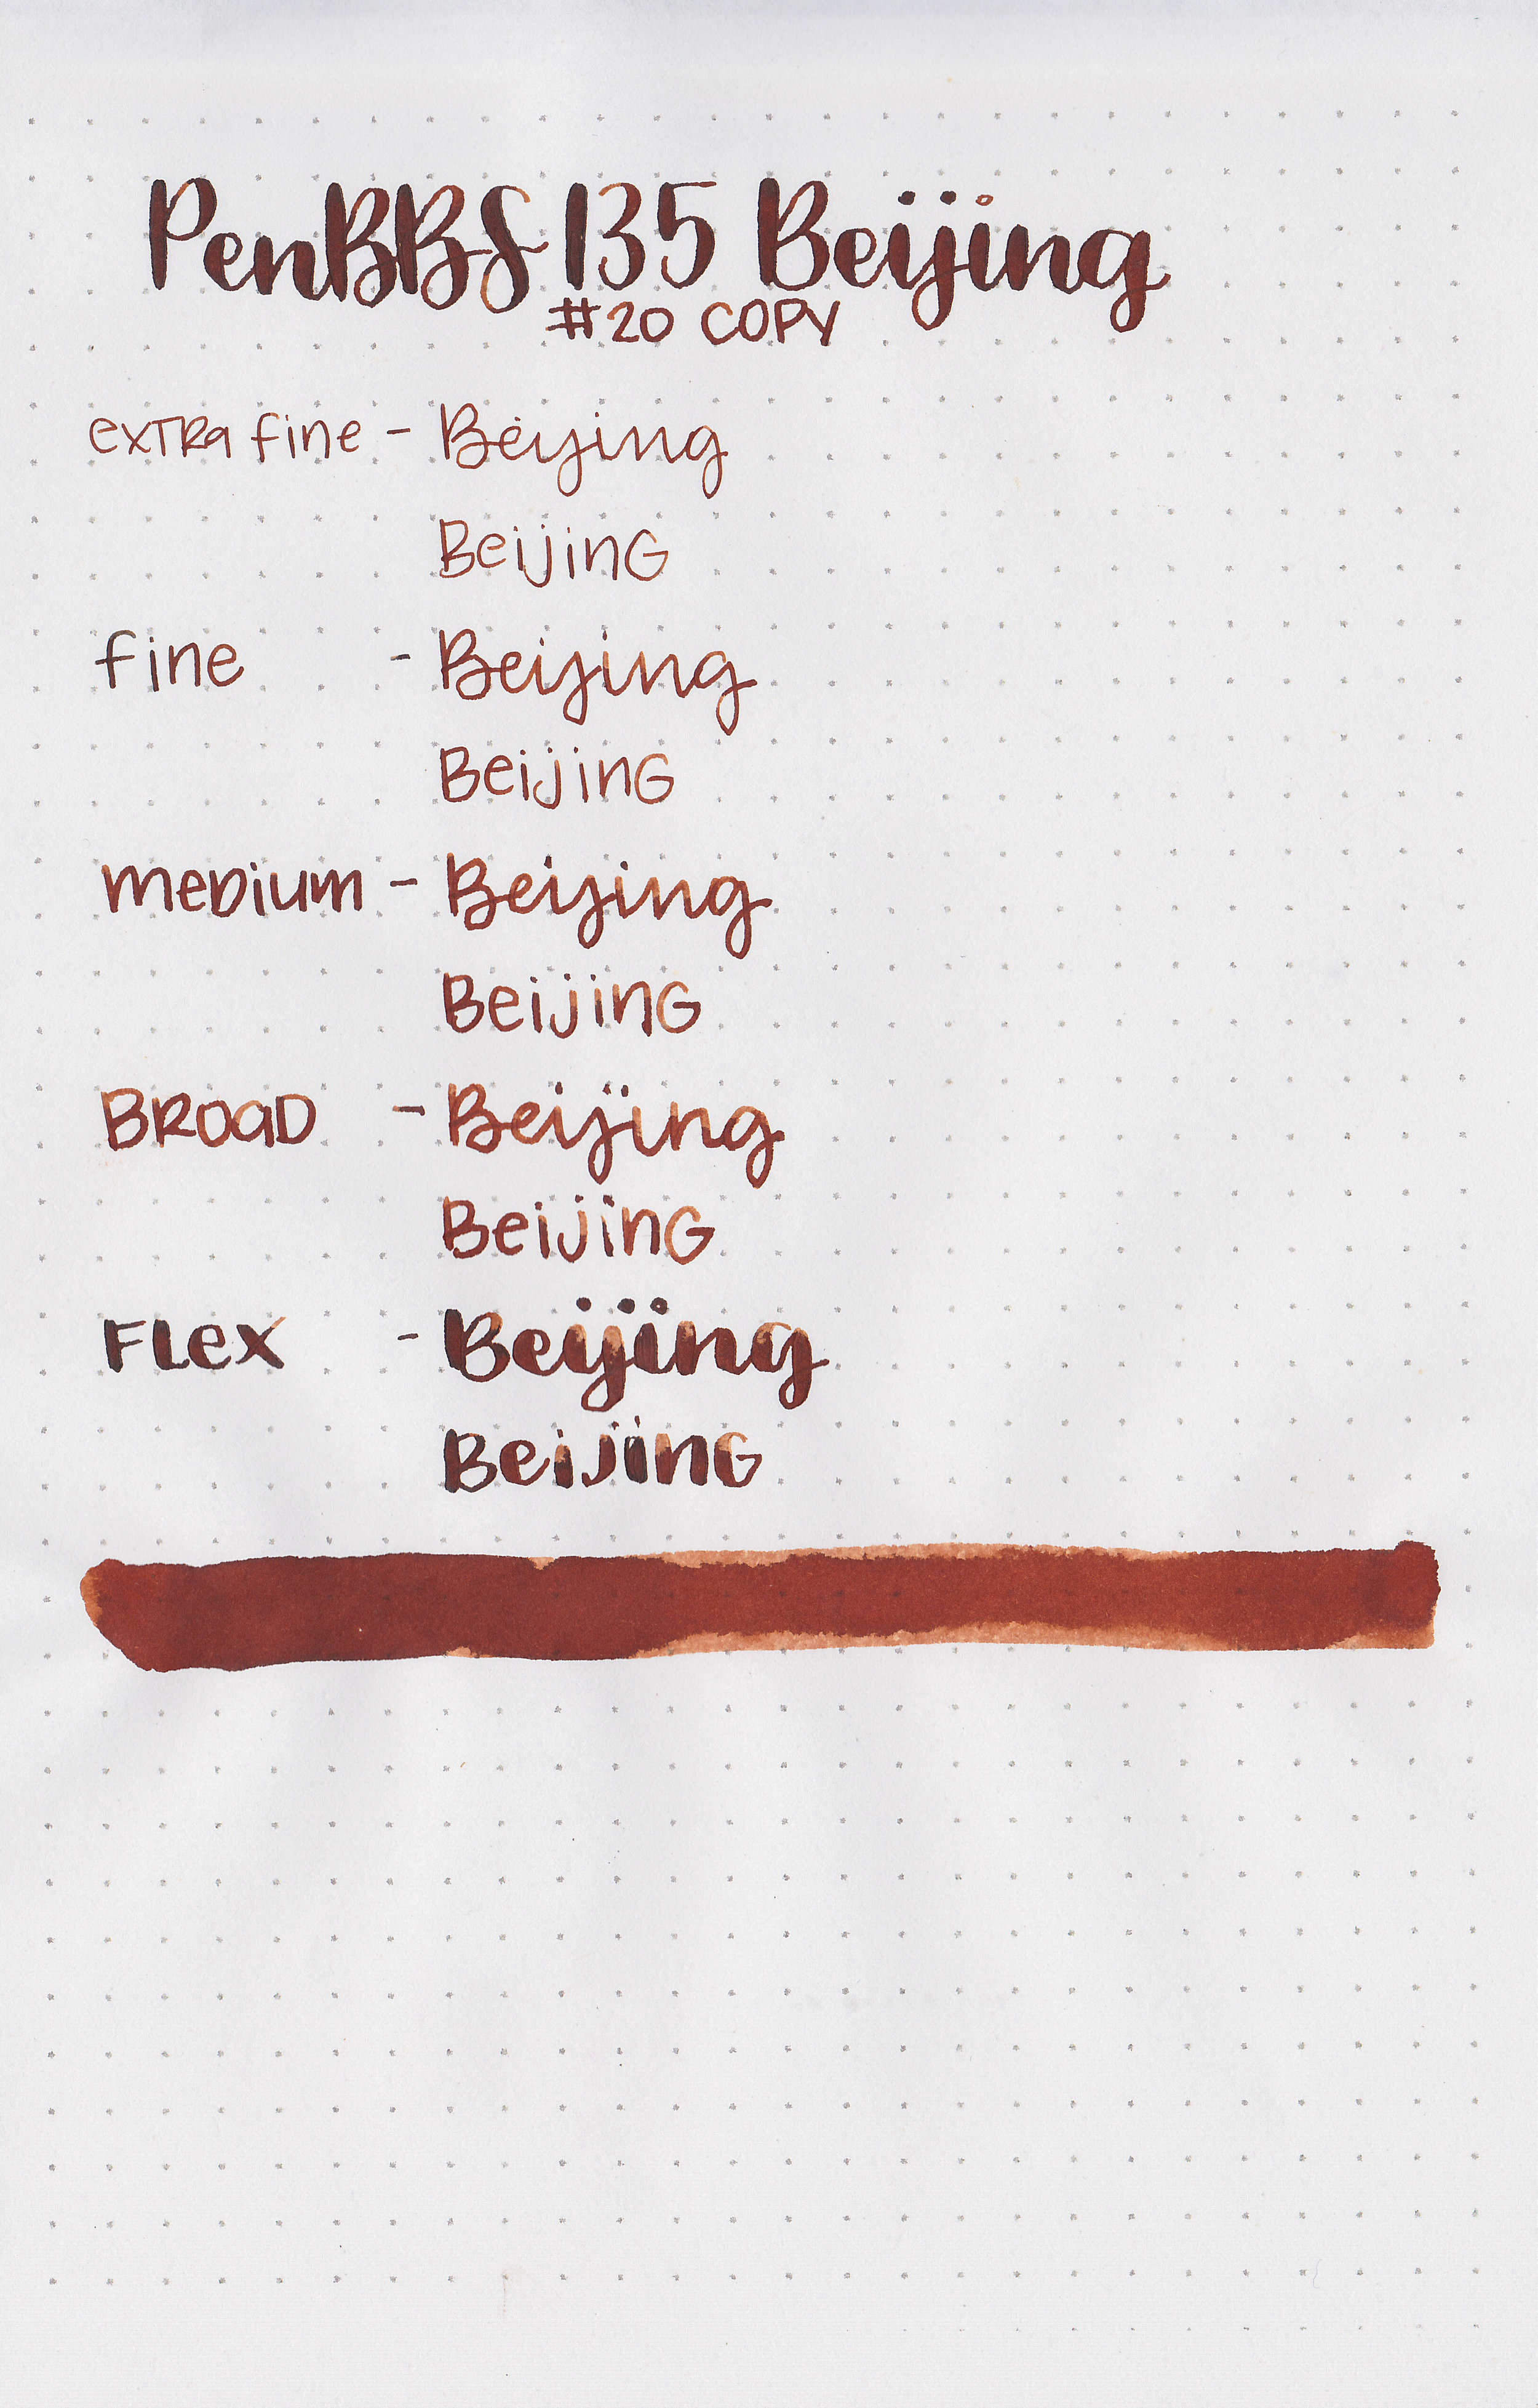 PenBBS 135 Beijing
#20 COPY
extra fine - Beijing
Beijing
fine - Beijing
Beijing
Medium - Beijing
Beijing
Broad - Beijing
Beijing
Flex - Beijing
Beijing